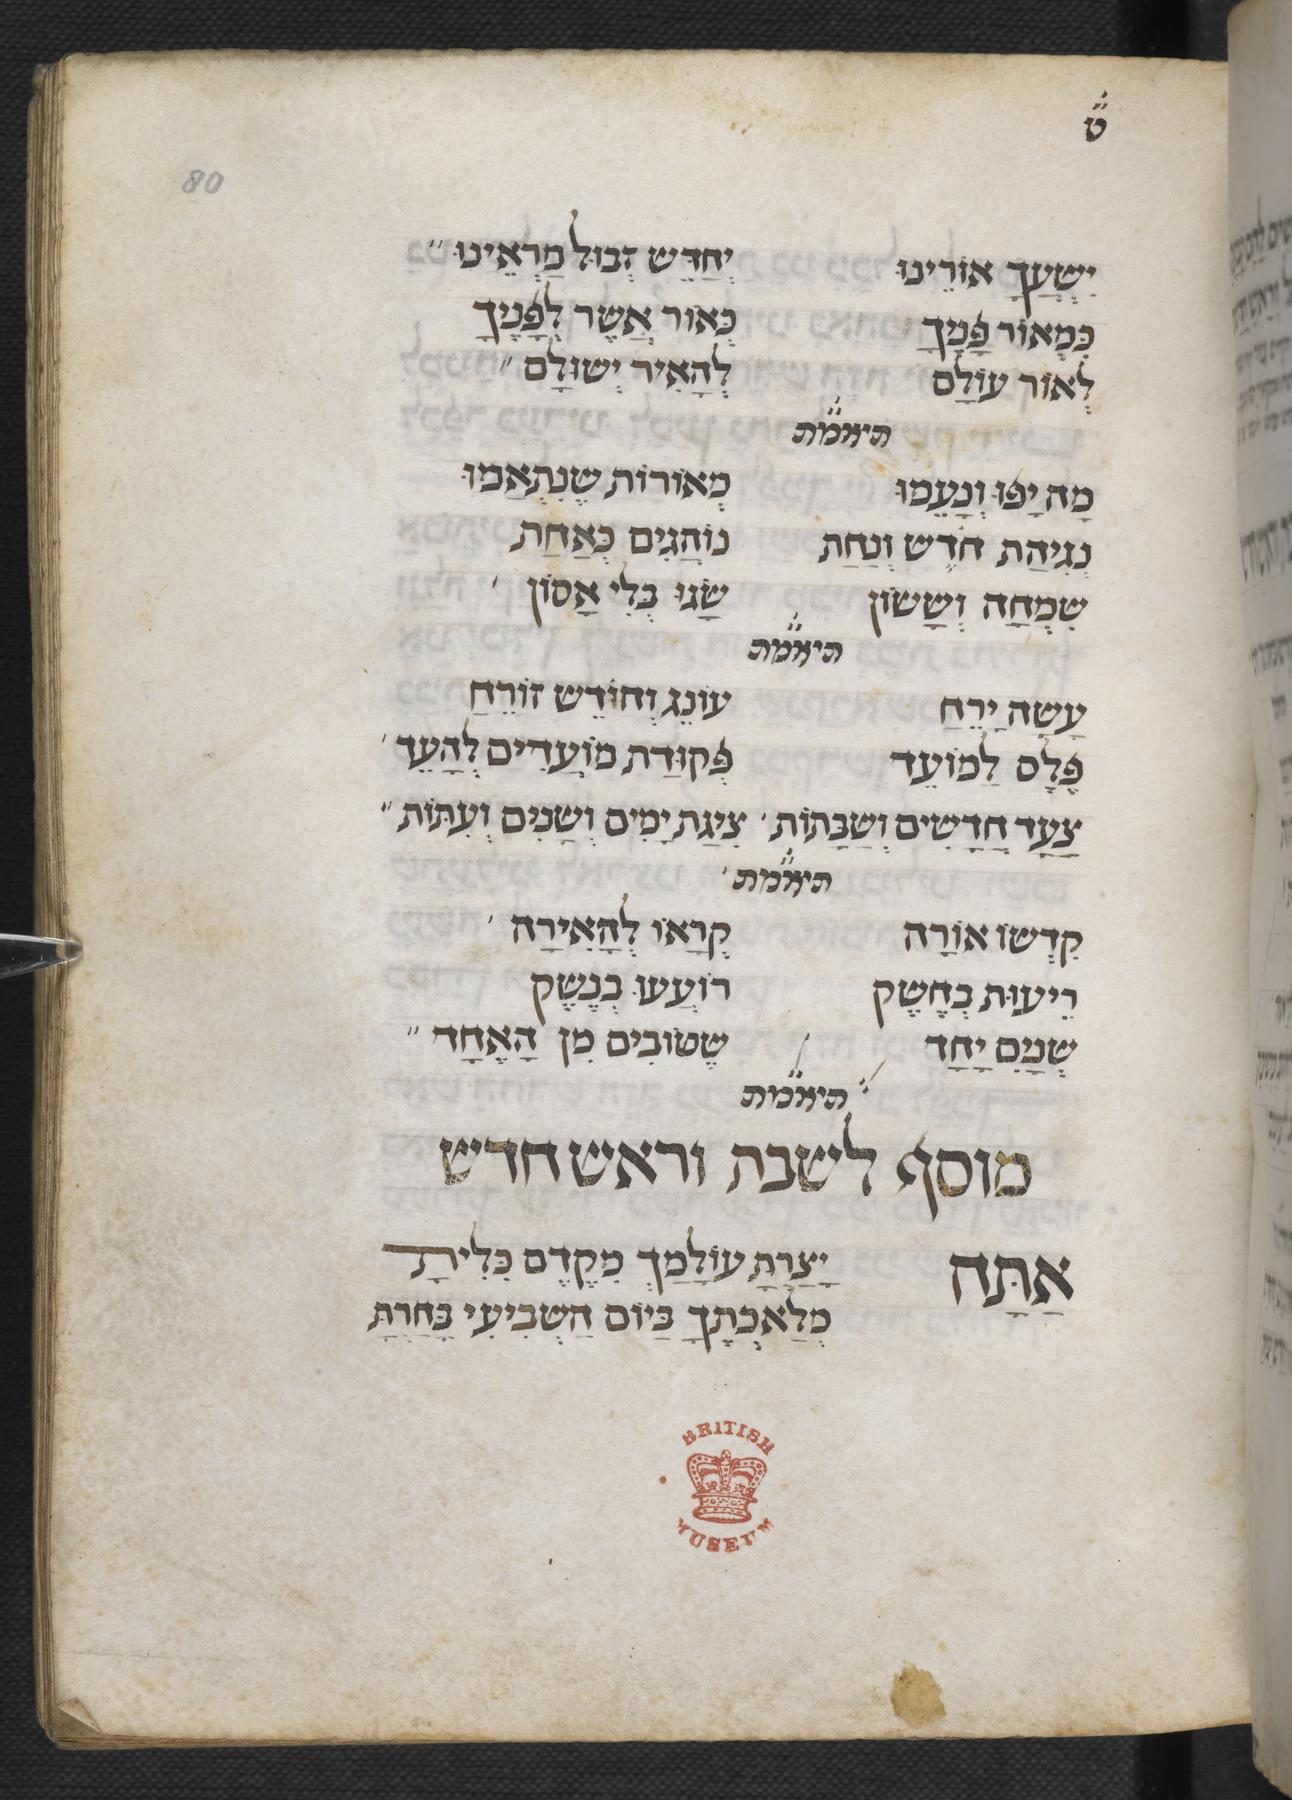 ט
80
יִשְׁעֲךָ אוֹרֵינוּ יְחַדֵּשׁ זְבוּל מַרְאֵינוּ
כִּמְאוֹר פָּנֶיךָ כְּאוֹר אֲשֶׁר לְפָנֶיךָ
לְאוֹר עוֹלָם לְהָאִיר יְשׁוּלָם
מַה יָפוּ וְנָעֵמוּ מְאוֹרוֹת שֶׁנִתְאַמוּ
נְגִיהַת חֹדֶשׁ וְנַחַת נוֹהֲגִים כְּאַחַת
שִׂמְחָה וְשָׂשׂוֹן שָׂגוּ בְּלִי אָסוֹן
עָשָׂה יָרֵחַ עוֹנֶג וְחוֹדֶשׁ זוֹרֵחַ
פָּלַס לַמוֹעֵד פְּקוּדַת מוֹעֲדִים לְהָעֵד
צָעַד חֳדָשִׁים וְשַׁבָּתוֹת צִיגַת יָמִים וְשָׁנִים וְעִתּוֹת
קִדְשׁוֹ אוֹרָה קְרָאוֹ לְהָאִירָה
רֵיעוּת בְּחֵשֶׁק רוֹעֲעוּ בְנֶשֶׁק
שְׁנַיִם יָחַד שֶׁטוֹבִים מִן הָאֶחָד
מוסף לשבת וראש חדש
אַתָּה יָצַרְתָּ עוֹלָמְךָ מִקֶּדֶם כִּלִיתָ
מְלַאכְתְּךָ בַּיּוֹם הַשְּׁבִיעִי בָּחַרְתָּ
BRITISH
MUSEUM